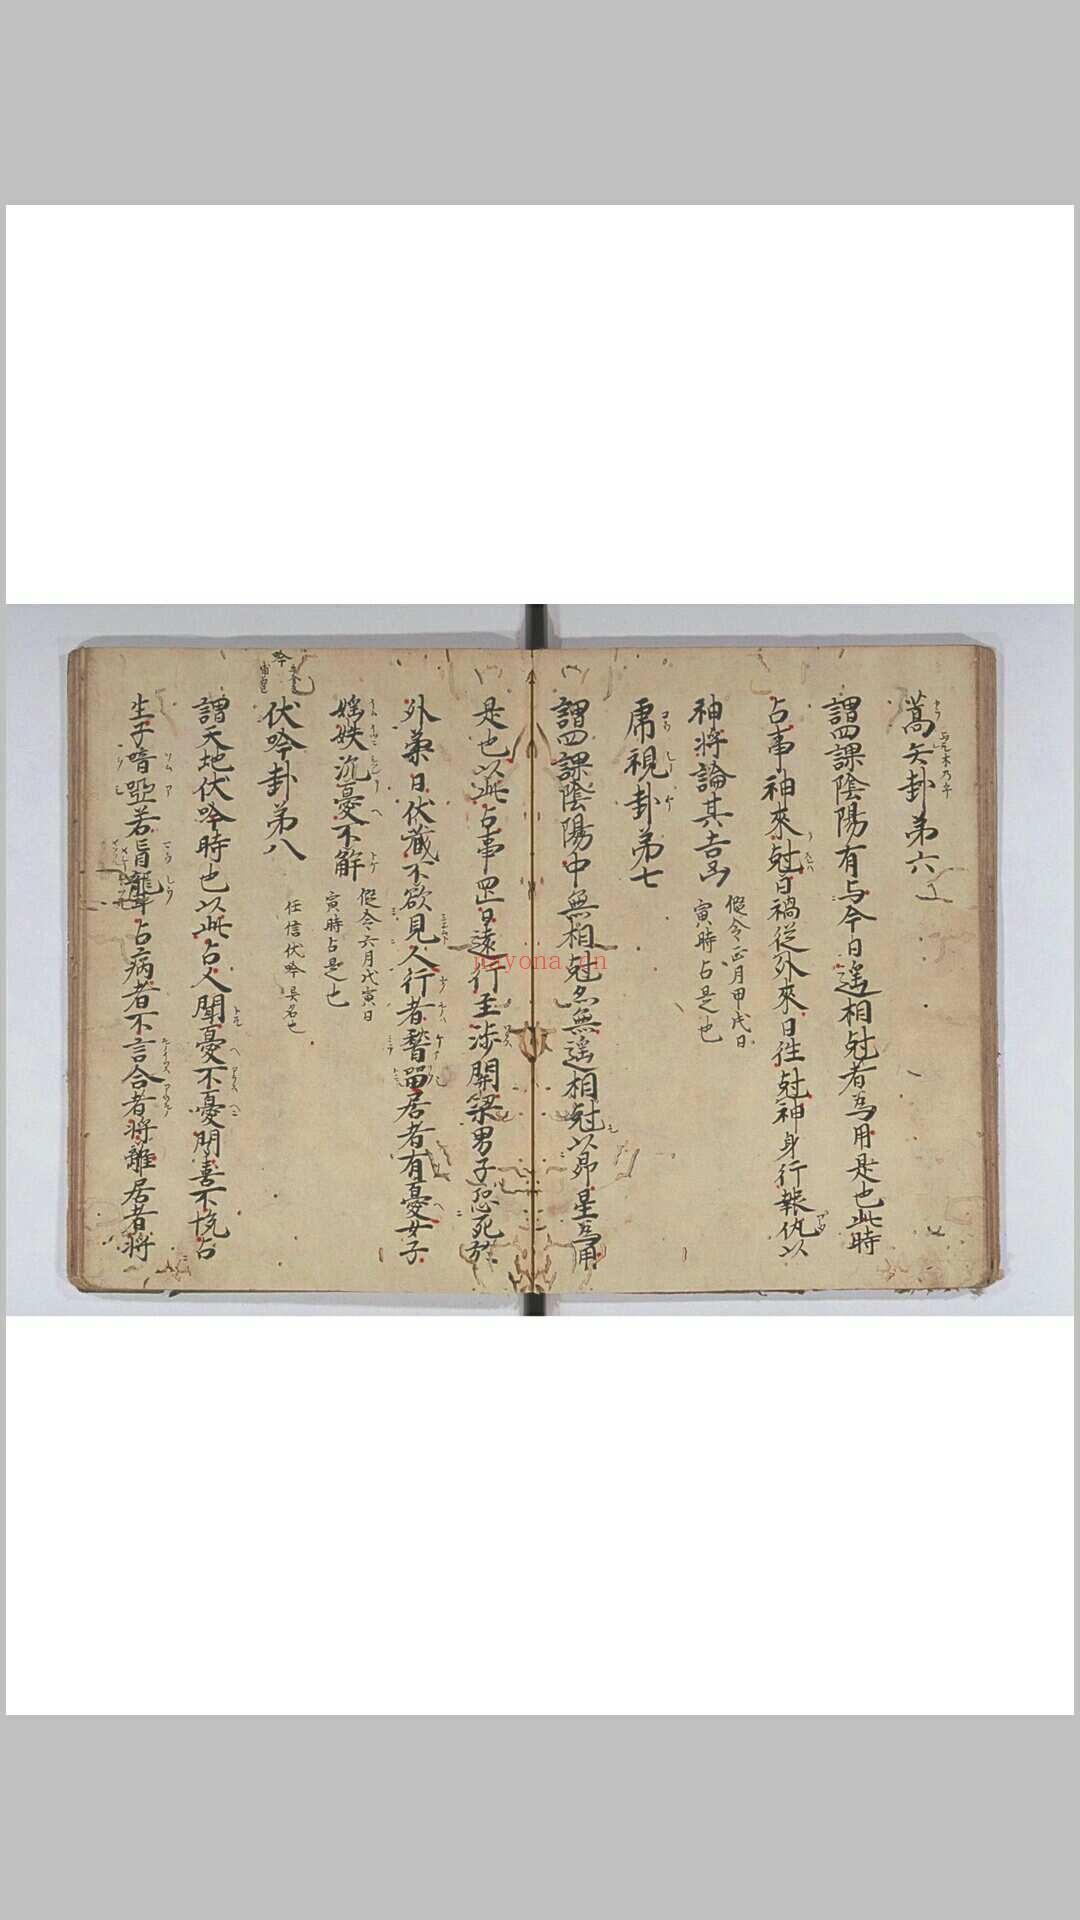 蒿矢卦第六
謂四課陰陽有与今日遥相尅者為用是也此時
占事神來尅日禍從外來日徃尅神身行報仇以
神將論其吉凶
假令正月甲戌日
寅時占是也
虎視卦第七
謂四課陰陽中無相尅炅無遥相尅以昴星為用
是也以此占事罡日遠行至渉關梁男子恐死於
外葇日伏蔵不欲見人行者稽留居者有憂女子
婬妷沉憂不解
假令六月戊寅日
寅時占是也
伏吟卦第八
任信伏吟異名也
謂天地伏吟時也以此占人聞憂不憂聞喜不悦占
生子喑啞若盲聾占病者不言合者將離居者將
nayona.cn